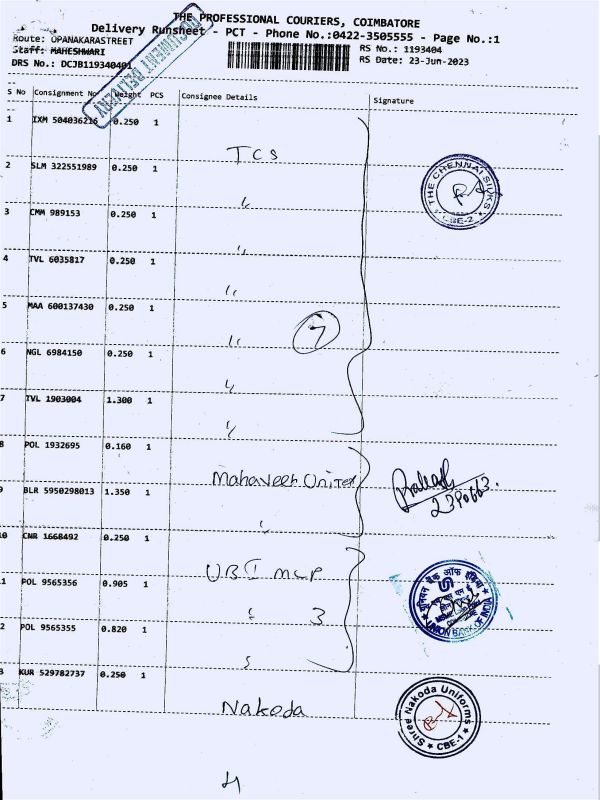 THE PROFESSIONAL COURIERS, COIMBATORE
Delivery Runsheet - PCT - Phone No.:0422-3505555 - Page No.:1
Route: OPANAKARASTREET
RS No.: 1193404
Staff: MAHESHWARI
RS Date: 23-Jun-2023
DRS No.: DCJB119340401
DOCUMENT DELIVERY
S No Consignment No Weight PCS Consignee Details Signature
1 IXM 504036216 0.250 1
TCS
THE CHENNAI SILKS
CBE-2
2 SLM 322551989 0.250 1
"
3 CMM 989153 0.250 1
"
4 TVL 6035817 0.250 1
"
5 MAA 600137430 0.250 1
" 7
6 NGL 6984150 0.250 1
"
7 TVL 1903004 1.300 1
"
8 POL 1932695 0.160 1
Mahaveer Unitex
9 BLR 5950298013 1.350 1
"
0 CNR 1668492 0.250 1
UBI MLP
यूनियन बैंक ऑफ इंडिया
UNION BANK OF INDIA
1 POL 9565356 0.905 1
" 3
2 POL 9565355 0.820 1
"
3 KUR 529782737 0.250 1
Nakoda
Shree Nakoda Uniforms
CBE-1
4